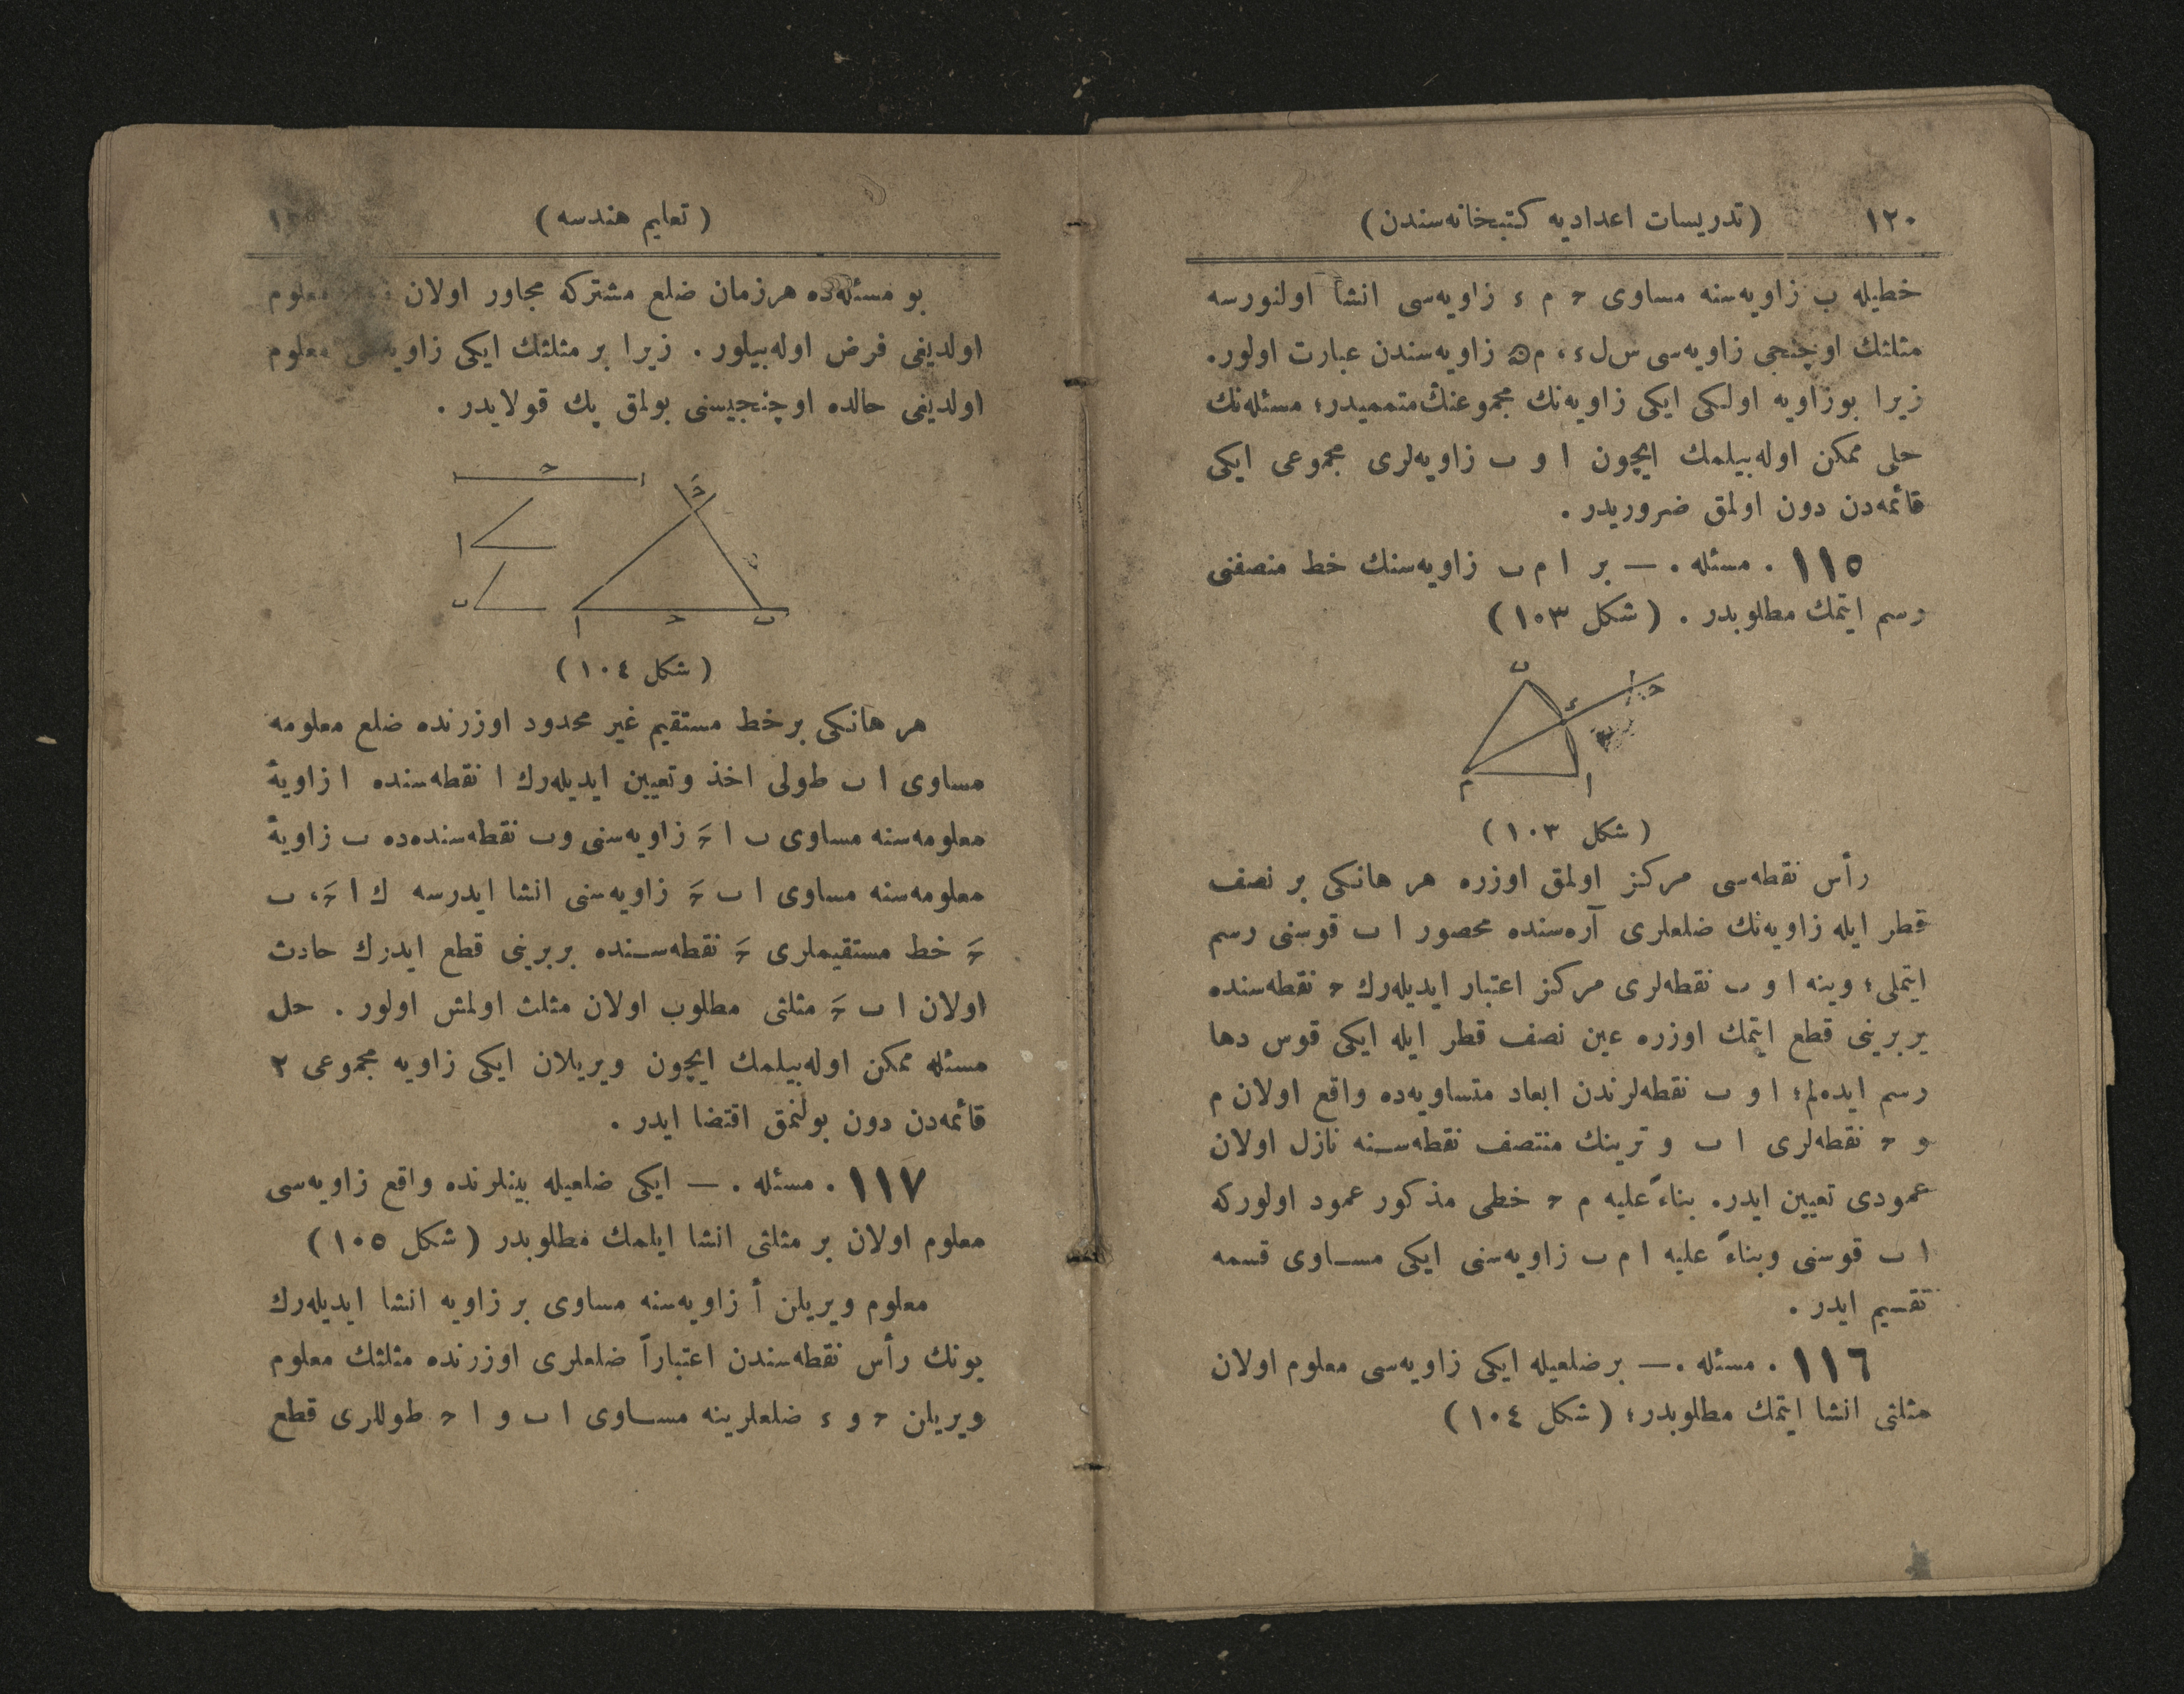 ١٢٠ (تدريسات اعداديه كتبخانه‌سندن)
خطيله ب زاويه‌سنه مساوى ﺣ م ء زاويه‌سى انشا اولنورسه
مثلثك اوچنجى زاويه‌سى س ل ء ، م ه زاويه‌سندن عبارت اولور.
زيرا بوزاويه اولكى ايكى زاويه‌نك مجموعنك متمميدر؛ مسئله‌نك
حلى ممكن اوله‌بيلمك ايچون ا و ب زاويه‌لرى مجموعى ايكى
قائمه‌دن دون اولمق ضروريدر .
١١٥ . مسئله . — بر ا م ب زاويه‌سنك خط منصفنى
رسم ايتمك مطلوبدر . (شكل ١٠٣)
ب
ء
ﺣ
م
ا
(شكل ١٠٣)
رأس نقطه‌سى مركز اولمق اوزره هر هانكى بر نصف
قطر ايله زاويه‌نك ضلعلرى آره‌سنده محصور ا ب قوسنى رسم
ايتملى؛ وينه ا و ب نقطه‌لرى مركز اعتبار ايديله‌رك ﺣ نقطه‌سنده
يربرينى قطع ايتمك اوزره عين نصف قطر ايله ايكى قوس دها
رسم ايده‌لم؛ ا و ب نقطه‌لرندن ابعاد متساويه‌ده واقع اولان م
و ﺣ نقطه‌لرى ا ب و ترينك منتصف نقطه‌سـنه نازل اولان
عمودى تعيين ايدر. بناءً عليه م ﺣ خطى مذكور عمود اولوركه
ا ب قوسنى وبناءً عليه ا م ب زاويه‌سنى ايكى مسـاوى قسمه
تقسيم ايدر .
١١٦ . مسئله . — برضلعيله ايكى زاويه‌سى معلوم اولان
مثلثى انشا ايتمك مطلوبدر؛ (شكل ١٠٤)
(تعليم هندسه)
بو مسئله‌ده هرزمان ضلع مشتركه مجاور اولان معلوم
اولديغى فرض اوله‌بيلور . زيرا بر مثلثك ايكى زاويه‌سى معلوم
اولديغى حالده اوچنجيسنى بولمق پك قولايدر .
ﺣ
ا
ب
ﺣَ
ا
ﺣ
ب
(شكل ١٠٤)
هر هانكى برخط مستقيم غير محدود اوزرنده ضلع معلومه
مساوى ا ب طولى اخذ وتعيين ايديله‌رك ا نقطه‌سنده ا زاويۀ
معلومه‌سنه مساوى ب ا ﺣَ زاويه‌سنى وب نقطه‌سنده‌ده ب زاويۀ
معلومه‌سنه مساوى ا ب ﺣَ زاويه‌سنى انشا ايدرسه ك ا ﺣَ، ب
ﺣَ خط مستقيملرى ﺣَ نقطه‌سـنده بربرينى قطع ايدرك حادث
اولان ا ب ﺣَ مثلثى مطلوب اولان مثلث اولمش اولور . حل
مسئله ممكن اوله‌بيلمك ايچون ويريلان ايكى زاويه مجموعى ٢
قائمه‌دن دون بولنمق اقتضا ايدر .
١١٧ . مسئله . — ايكى ضلعيله بينلرنده واقع زاويه‌سى
معلوم اولان بر مثلثى انشا ايلمك مطلوبدر (شكل ١٠٥)
معلوم ويريلن أ زاويه‌سنه مساوى بر زاويه انشا ايديله‌رك
بونك رأس نقطه‌سندن اعتباراً ضلعلرى اوزرنده مثلثك معلوم
ويريلن ﺣ و ء ضلعلرينه مسـاوى ا ب و ا ﺣ طوللرى قطع